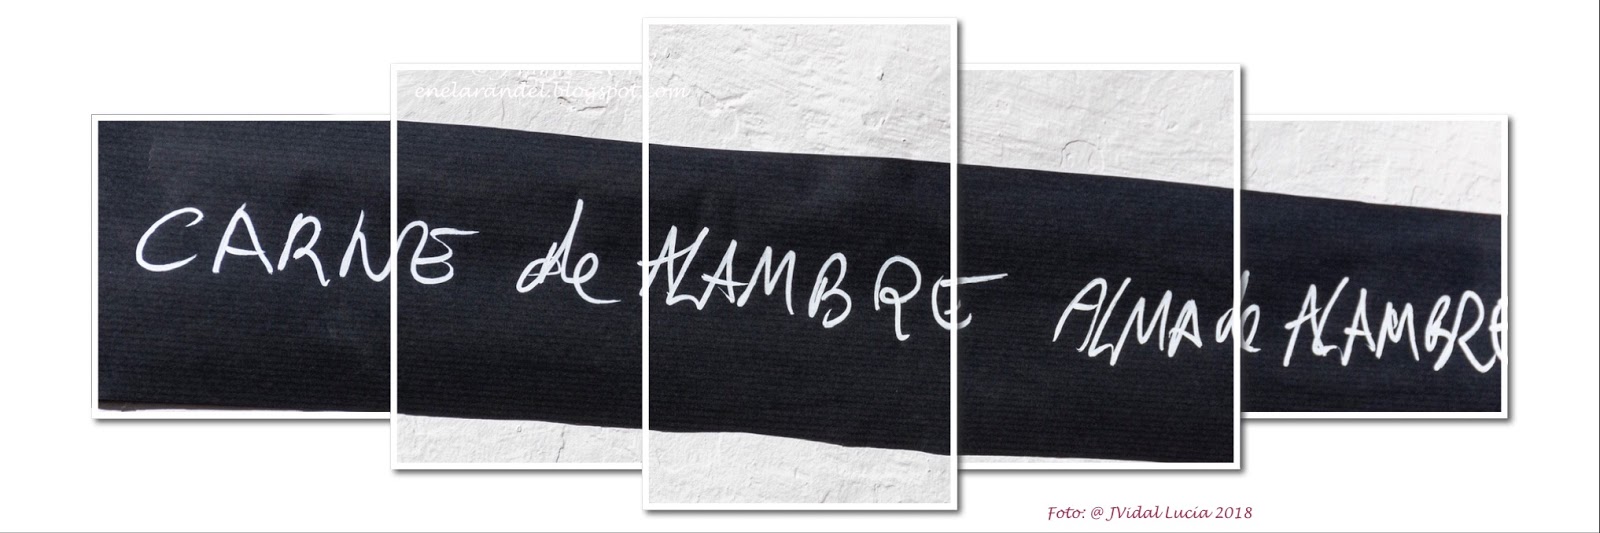 enelarandel.blogspot.com
CARNE de ALAMBRE ALMA de ALAMBRE
Foto: @ JVidal Lucia 2018